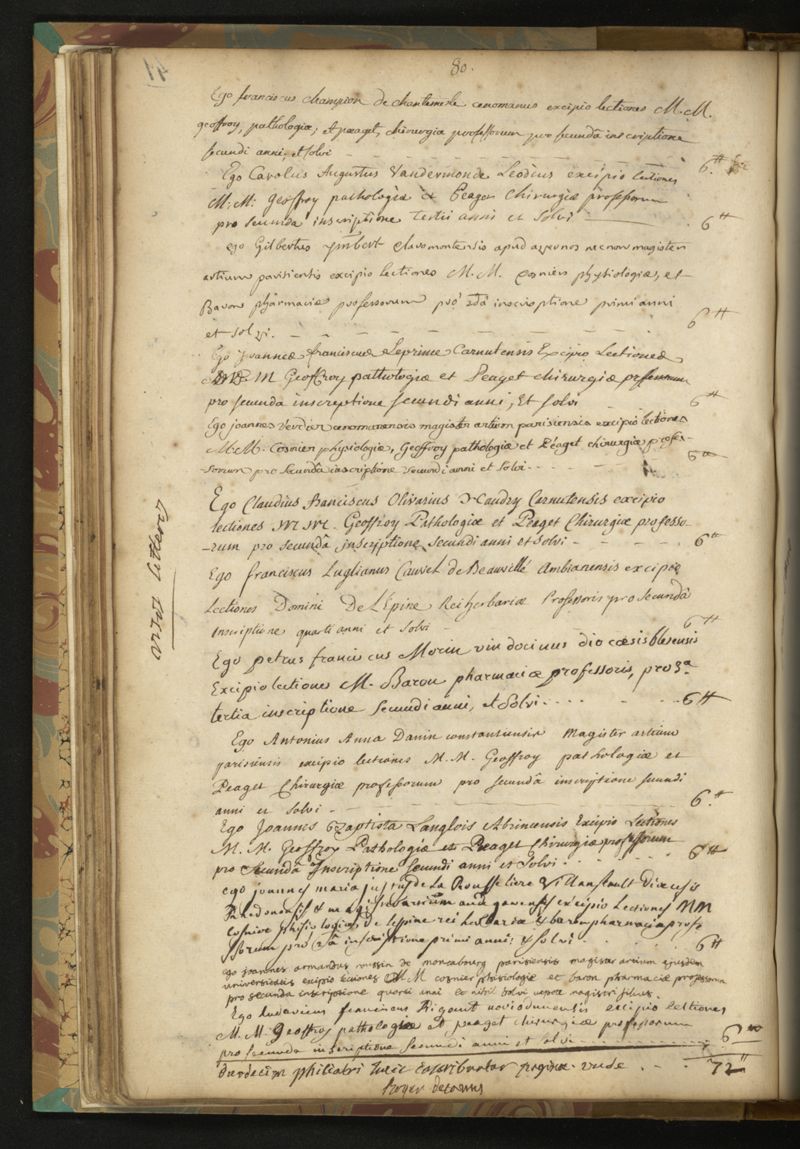 80.
Ego franciscus champion de chantemesle cenomanus excipio lectiones M.M.
geoffroy, pathologiæ, et peaget, chirurgiæ professorum pro secundâ inscriptione
secundi anni, et solvi
6 ₶
Ego Carolus Augustus Vandermonde Leodius excipio lectiones
M. M. Geoffroy pathologiæ & Peaget Chirurgiæ professorum
pro secunda inscriptione tertii anni et solvi 6 ₶
ego Gilbertus ymbert claromontensis apud arvernos necnon magister
artium parisiensis excipio lectiones M. M. Cosnier physiologiæ, et
Baron pharmaciæ professorum pro 2dâ inscriptione primi anni
et solvi. 6 ₶
Ego Joannes franciscus Leprince Carnutensis Excipio Lectiones
M Geoffroy pathologiæ et Peaget chirurgiæ professorum
pro secunda inscriptione secundi anni, Et solvi 6 ₶
Ego joannes Verdier cenomanensis magister artium parisiensis excipio lectiones
M. M. Cosnier physiologiæ, Geoffroy pathologiæ et Péaget chirurgiæ profes-
sorum pro secundâ inscriptione secundi anni et solvi. 6 ₶
Ego Claudius franciscus Olivarius Naudry Carnutensis excipio
lectiones M. M. Geoffroy Pathologiæ et Peaget Chirurgiæ professo-
-rum pro secundâ inscriptione secundi anni et solvi 6 ₶
Ego franciscus Luglianus Cauvel de Beauvillé Ambianensis excipio
Lectiones Domini De L'Epine Rei herbariæ Professoris pro secundâ
inscriptione quarti anni et solvi 6 ₶
Ego petrus franciscus Morin vindocinus diocœsis blesensis
Excipio lectiones M. Baron pharmaciæ professoris, pro 3a
tertia inscriptione secundi anni, et solvi 6 ₶
Ego Antonius Anna Danin constantiensis Magister artium
parisiensis excipio lectiones M. M. Geoffroy pathologiæ et
Peaget Chirurgiæ professorum pro secundâ inscriptione secundi
anni et solvi 6 ₶
Ego Joannes Baptista Langlois Abrincensis Excipio Lectiones
M. M. Geoffroy Pathologiæ et Peaget Chirurgiæ professorum
pro secundâ Inscriptione secundi anni et solvi 6 ₶
ego joannes maria justus de La Rousseliere
Rhedonensis & magister artium excipio Lectiones MM
Cosnier phisiologiæ, De lespine rei herbariæ & baron pharmaciæ profes
sorum pro 2dâ inscriptione primi anni & solvi 6 ₶
ego joannes armandus roussin de moncabourg parisiensis magister artium ejusdem
universitatis excipio lectiones M M cosnier phisiologiæ et baron pharmaciæ professorum
pro secunda inscriptione quarti anni et nihil solvi magistri filius.
Ego Ludovicus franciscus Rigault noviodunensis excipio lectiones
M. M. Geoffroy pathologiæ et peaget chirurgiæ professorum
pro secunda inscriptione secundi anni et solvi 6 ₶
duodecim philiatri huic paginæ 72 ₶